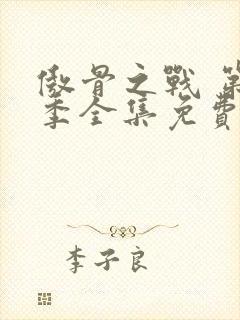 傲骨之戰 第
季全集免費
李子良